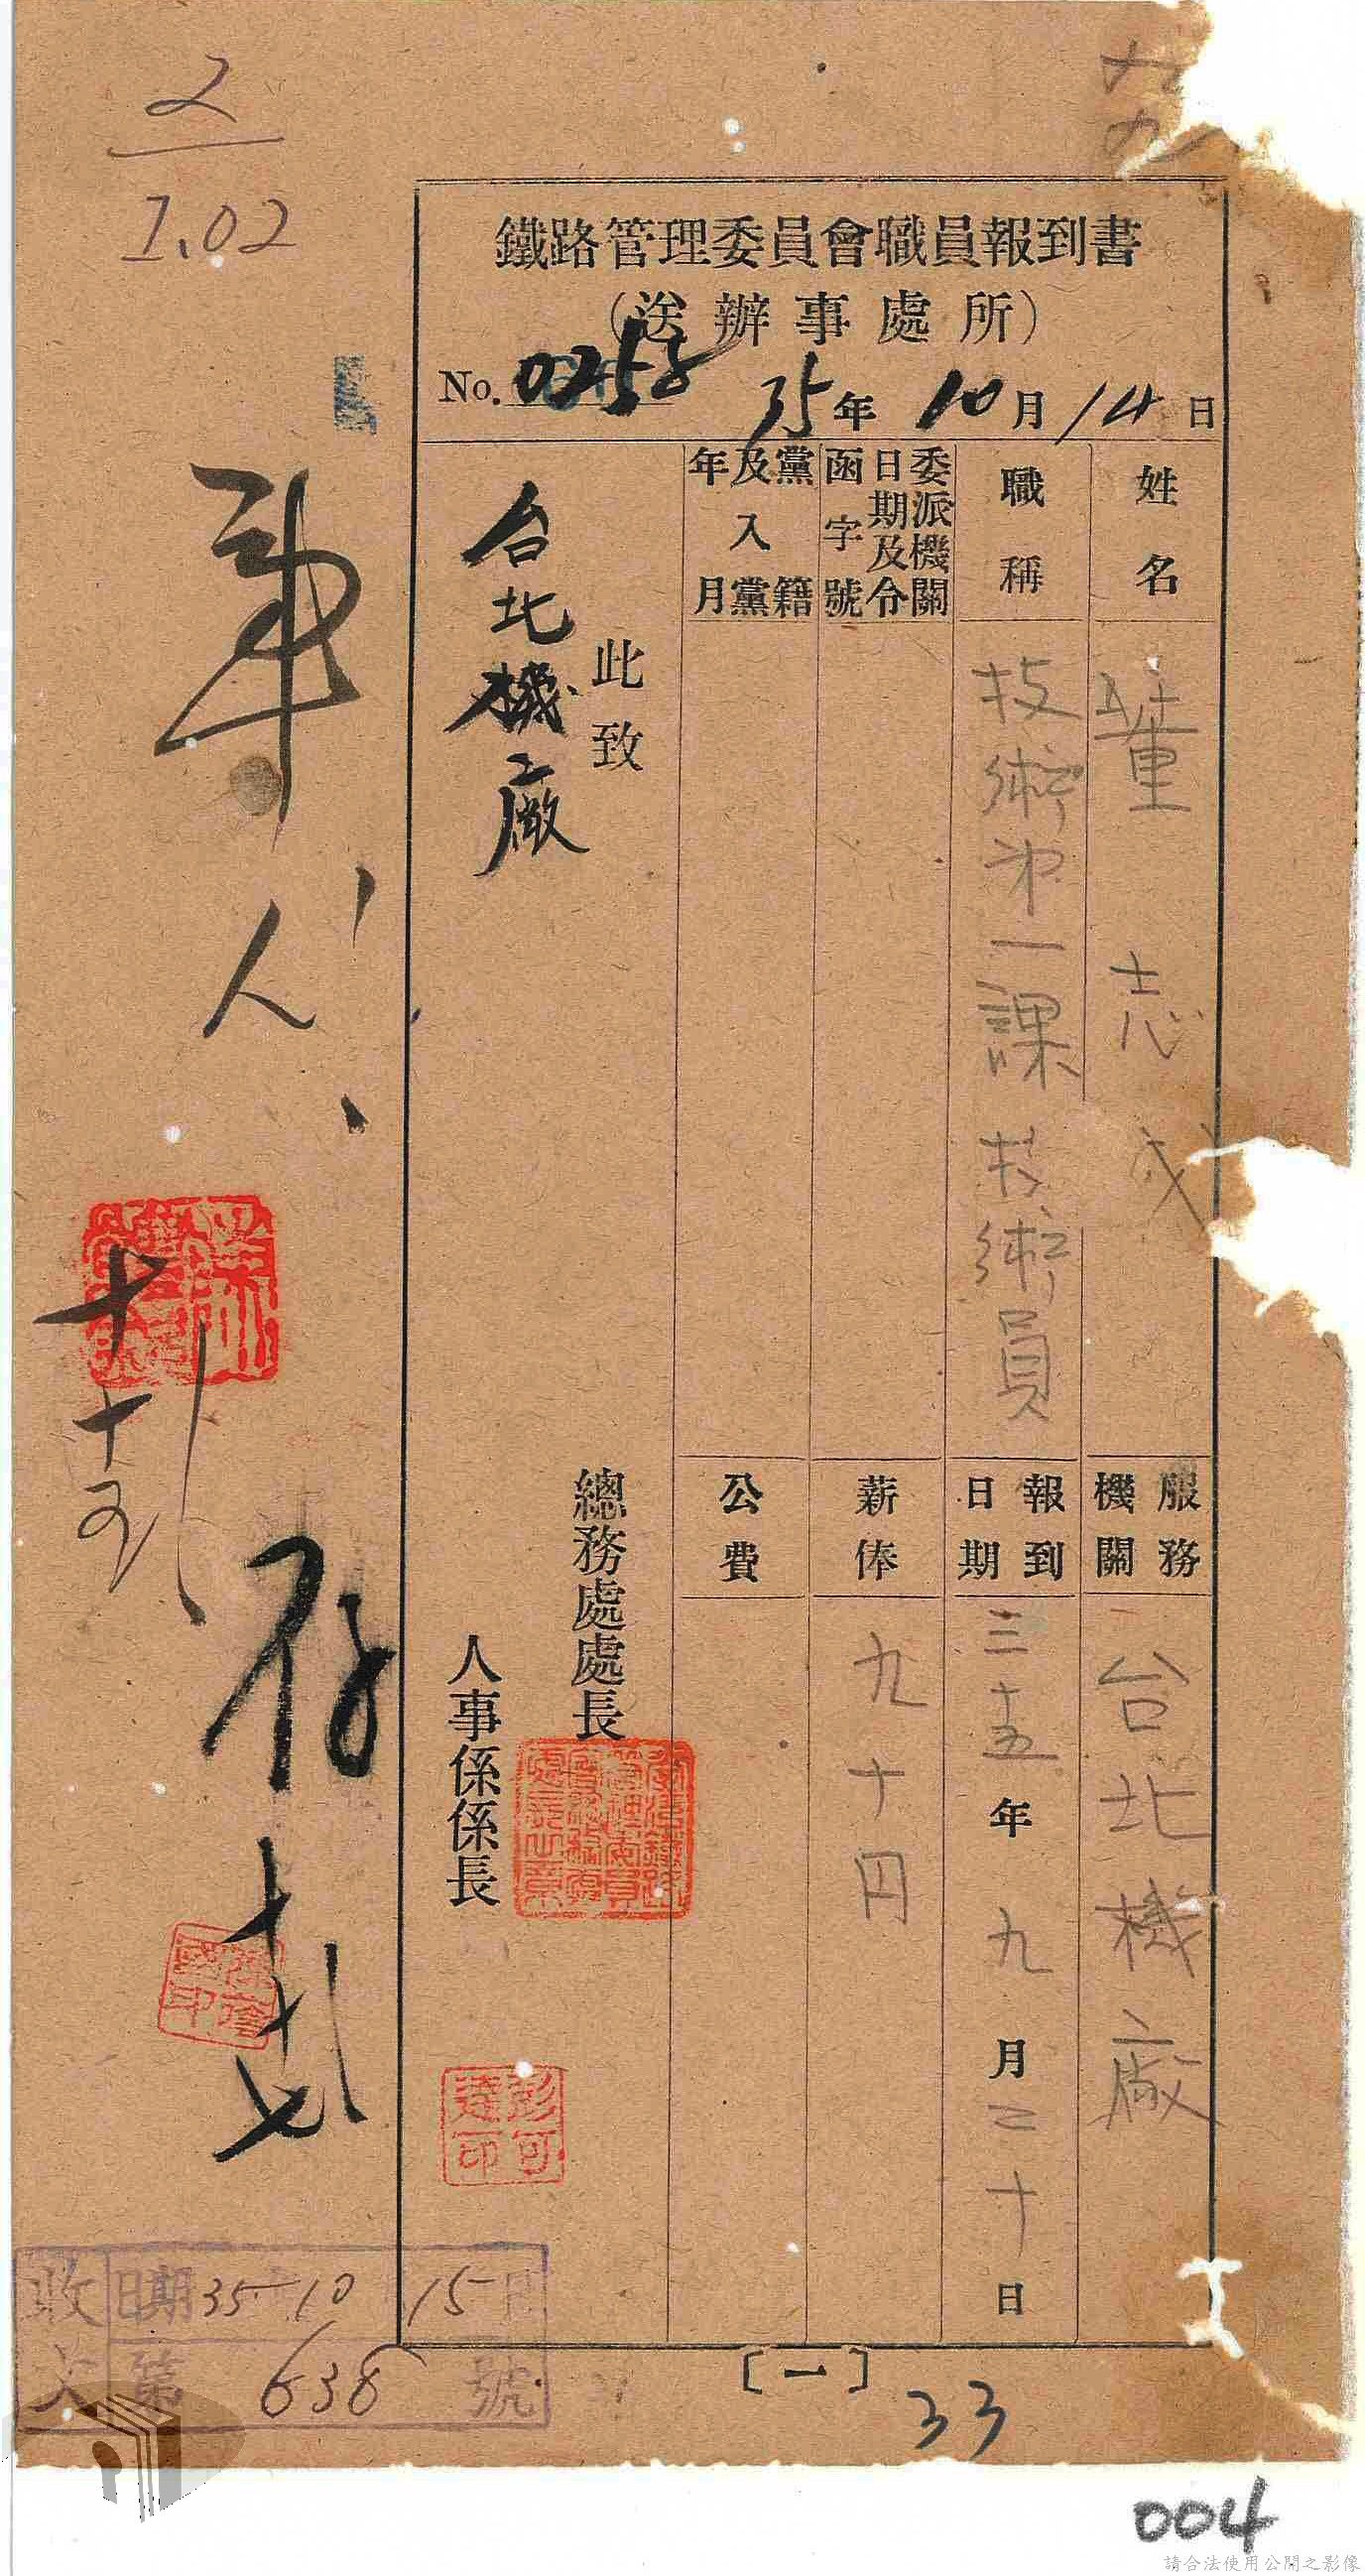 2
1.02
鐵路管理委員會職員報到書
(送辦事處所)
No. 0258 35年10月14日
姓名
董志成
服務機關
台北機廠
職稱
技術第一課技術員
報到日期
三十五年九月二十日
委派機關日期及令函字號
薪俸
九十円
黨籍及入黨年月
公費
此致
台北機廠
總務處處長
人事係係長
彭可達印
人
存
收文
日期 35 10 15日
第 638 號
〔一〕
33
004
請合法使用公開之影像